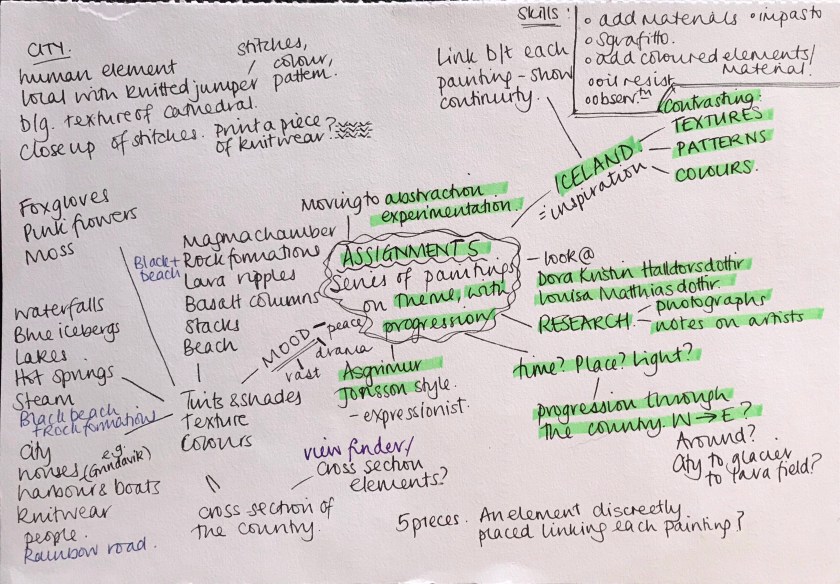 CITY.
human element
local with knitted jumper
b/g. texture of cathedral.
close up of stitches.
stitches,
colour,
pattern.
print a piece
of knitwear?
Link b/t each
painting - show
continuity.
Skills:
• add materials • impasto
• Sgrafitto.
• add coloured elements/
material.
• oil resist
• observtn
ICELAND
= inspiration
Contrasting:
TEXTURES
PATTERNS
COLOURS.
Foxgloves
Pink flowers
Moss
Black +
beach
Magma chamber
Rock formations
Lava ripples
Basalt columns
Stacks
Beach
Moving to abstraction
experimentation.
ASSIGNMENT 5
Series of paintings
on theme, with
progression
- look @
Dora Kristin Halldorsdottir
Louisa Matthiasdottir.
RESEARCH - photographs
notes on artists
MOOD - peace
drama
vast
Asgrimur
Jonsson style.
- expressionist.
time? Place? Light?
progression through
the country. W → E?
Around?
City to glacier
to lava field?
waterfalls
Blue icebergs
Lakes
Hot springs
Steam
Black beach
+ Rock formations
City
houses (e.g. Grindavik)
harbour & boats
knitwear
people.
Rainbow road.
Tints & shades
Texture
Colours
view finder/
cross section
elements?
cross section of
the country.
5 pieces. An element discreetly
placed linking each painting?